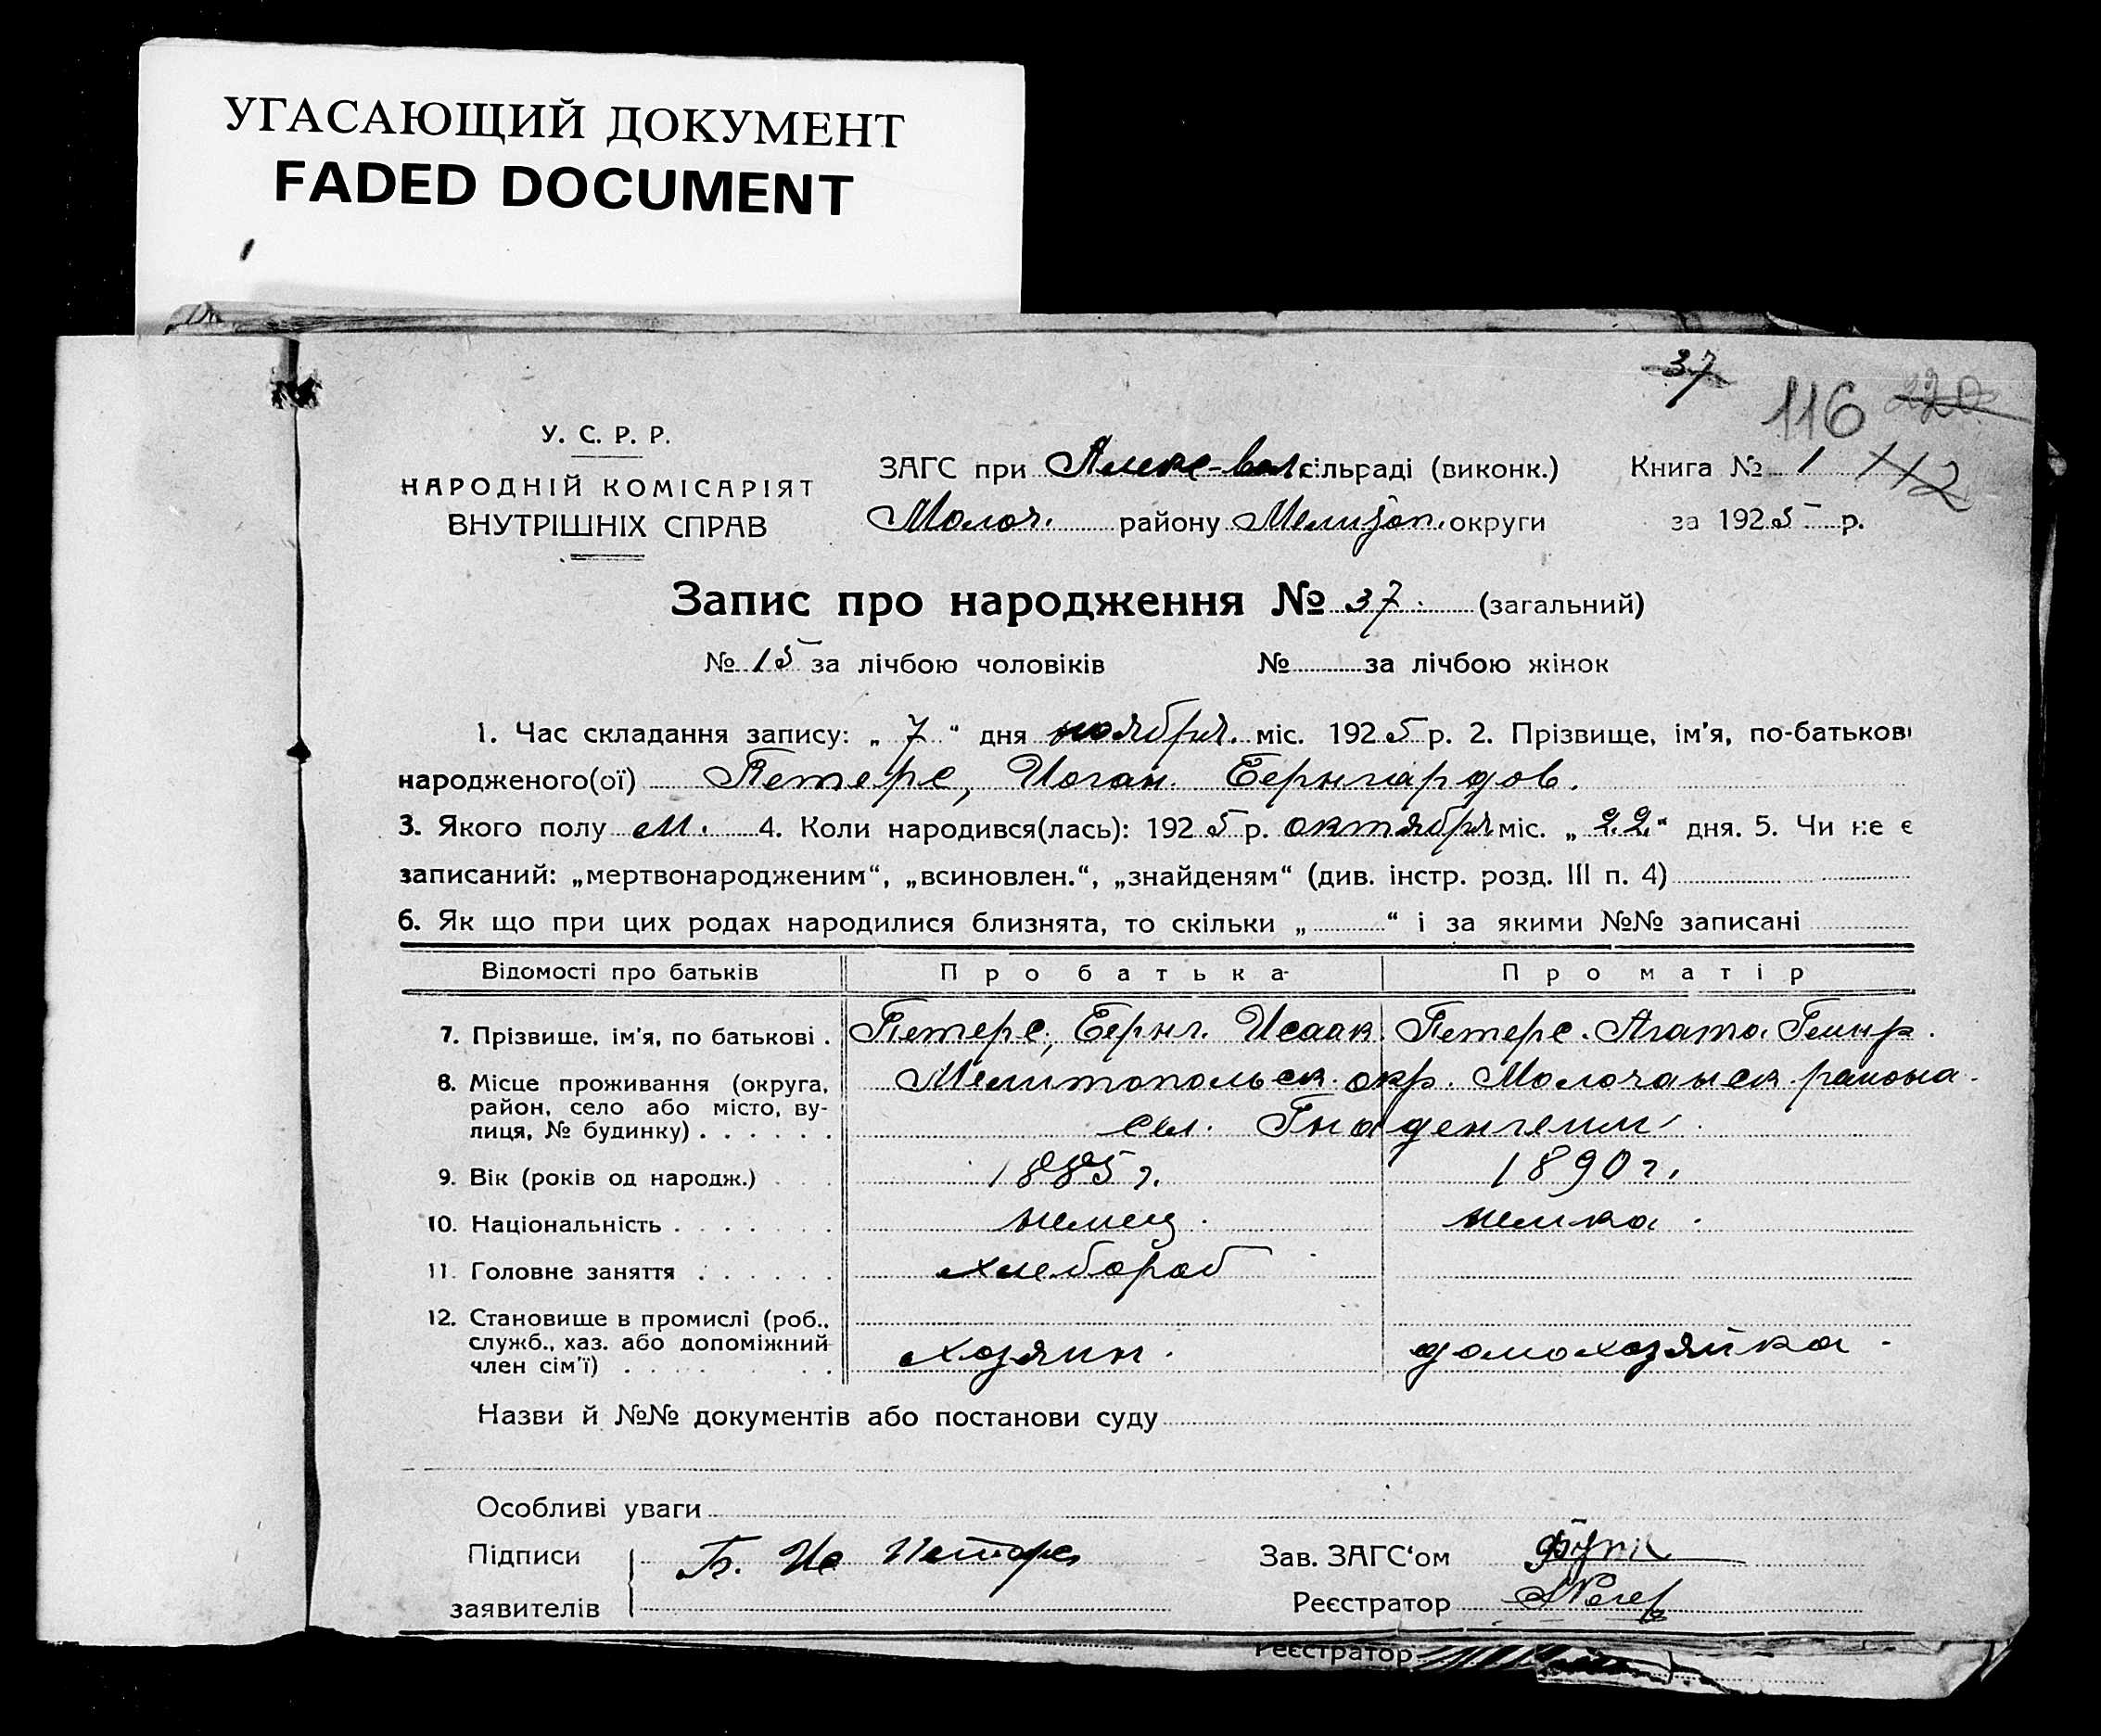 УГАСАЮЩИЙ ДОКУМЕНТ
FADED DOCUMENT
37
116 220
У. С. Р. Р.
НАРОДНІЙ КОМІСАРІЯТ
ВНУТРІШНІХ СПРАВ
ЗАГС при Алекс-вал сільраді (виконк.)
Молоч. району Мелитоп. округи
Книга № 1 112
за 1925 р.
Запис про народження № 37. (загальний)
№ 15 за лічбою чоловіків № за лічбою жінок
1. Час складання запису: „ 7 “ дня ноября. міс. 1925 р. 2. Прізвище, ім'я, по-батькові
народженого(ої) Петерс, Иоган. Бернгардов.
3. Якого полу М. 4. Коли народився(лась): 1925 р. октября міс. „ 22 “ дня. 5. Чи не є
записаний: „мертвонародженим“, „всиновлен.“, „знайденям“ (див. інстр. розд. III п. 4)
6. Як що при цих родах народилися близнята, то скільки „ “ і за якими №№ записані
Відомості про батьків Про батька Про матір
7. Прізвище, ім'я, по батькові . Петерс, Бернг. Исаак. Петерс. Агата Гейнр.
8. Місце проживання (округа, район, село або місто, ву-лиця, № будинку) . . . . . . Мелитопольск. окр. Молочанск. района.
сел. Гнаденгейм.
9. Вік (років од народж.) . . . 1885 г. 1890 г.
10. Національність . . . . . . . немец. немка.
11. Головне заняття . . . . . . хлебороб
12. Становище в промислі (роб., служб., хаз. або допоміжний член сім'ї) . . . . . . хозяин. домохозяйка -
Назви й №№ документів або постанови суду
Особливі уваги
Підписи Б. Ис Петерс Зав. ЗАГС‘ом
заявителів Реєстратор
Реєстратор